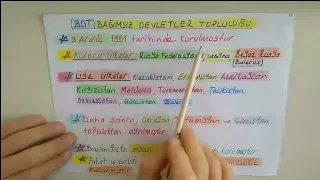 (BDT) BAĞIMSIZ DEVLETLER TOPLULUĞU
8 Aralık 1991 tarihinde kurulmuştur
Kurucu ülkeler: Rusya Federasyonu, Ukrayna, Beyaz Rusya
(Belarus)
Üye Ülkeler: Kazakistan, Ermenistan, Azerbaycan,
Kırgızistan, Moldova, Türkmenistan, Tacikistan,
Özbekistan, Gürcistan
Daha sonra, Ukrayna, Türkmenistan ve Gürcistan
topluluktan ayrılmıştır.
Başlangıçta
Fakat